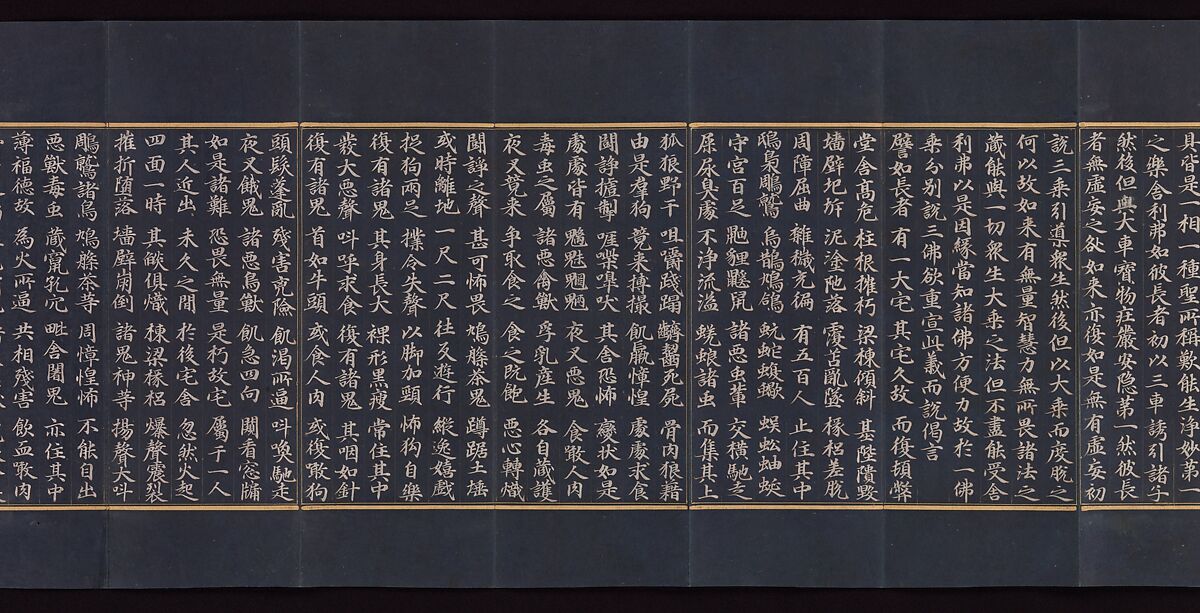 具皆是一相一種聖所稱歎能生淨妙第一
之樂舍利弗如彼長者初以三車誘引諸子
然後但與大車寶物莊嚴安隱第一然彼長
者無虛妄之咎如來亦復如是無有虛妄初
說三乘引導衆生然後但以大乘而度脫之
何以故如來有無量智慧力無所畏諸法之
藏能與一切衆生大乘之法但不盡能受舍
利弗以是因緣當知諸佛方便力故於一佛
乘分別說三佛欲重宣此義而說偈言
譬如長者 有一大宅 其宅久故 而復頓弊
堂舍高危 柱根摧朽 梁棟傾斜 基陛隤毀
墻壁圮坼 泥塗陁落 覆苫亂墜 椽梠差脫
周障屈曲 雜穢充徧 有五百人 止住其中
鴟梟鵰鷲 烏鵲鳩鴿 蚖蛇蝮蠍 蜈蚣蚰蜒
守宮百足 鼬貍鼷鼠 諸惡虫輩 交橫馳走
屎尿臭處 不淨流溢 蜣蜋諸虫 而集其上
狐狼野干 咀嚼踐蹋 齩齧死屍 骨肉狼藉
由是羣狗 競來搏撮 飢羸慞惶 處處求食
鬪諍摣掣 啀喍嘷吠 其舍恐怖 變狀如是
處處皆有 魑魅魍魎 夜叉惡鬼 食噉人肉
毒虫之屬 諸惡禽獸 孚乳産生 各自藏護
夜叉競來 爭取食之 食之旣飽 惡心轉熾
鬪諍之聲 甚可怖畏 鳩槃茶鬼 蹲踞土埵
或時離地 一尺二尺 往反遊行 縱逸嬉戲
捉狗兩足 撲令失聲 以脚加頸 怖狗自樂
復有諸鬼 其身長大 裸形黑瘦 常住其中
發大惡聲 叫呼求食 復有諸鬼 其咽如針
復有諸鬼 首如牛頭 或食人肉 或復噉狗
頭髮蓬亂 殘害兇險 飢渴所逼 叫喚馳走
夜叉餓鬼 諸惡鳥獸 飢急四向 闚看窓牖
如是諸難 恐畏無量 是朽故宅 屬于一人
其人近出 未久之間 於後宅舍 忽然火起
四面一時 其燄俱熾 棟梁椽梠 爆聲震裂
摧折隨落 墻壁崩倒 諸鬼神等 揚聲大叫
鵰鷲諸鳥 鳩槃茶等 周慞惶怖 不能自出
惡獸毒虫 藏竄孔穴 毗舍闍鬼 亦住其中
薄福德故 為火所逼 共相殘害 飲血噉肉